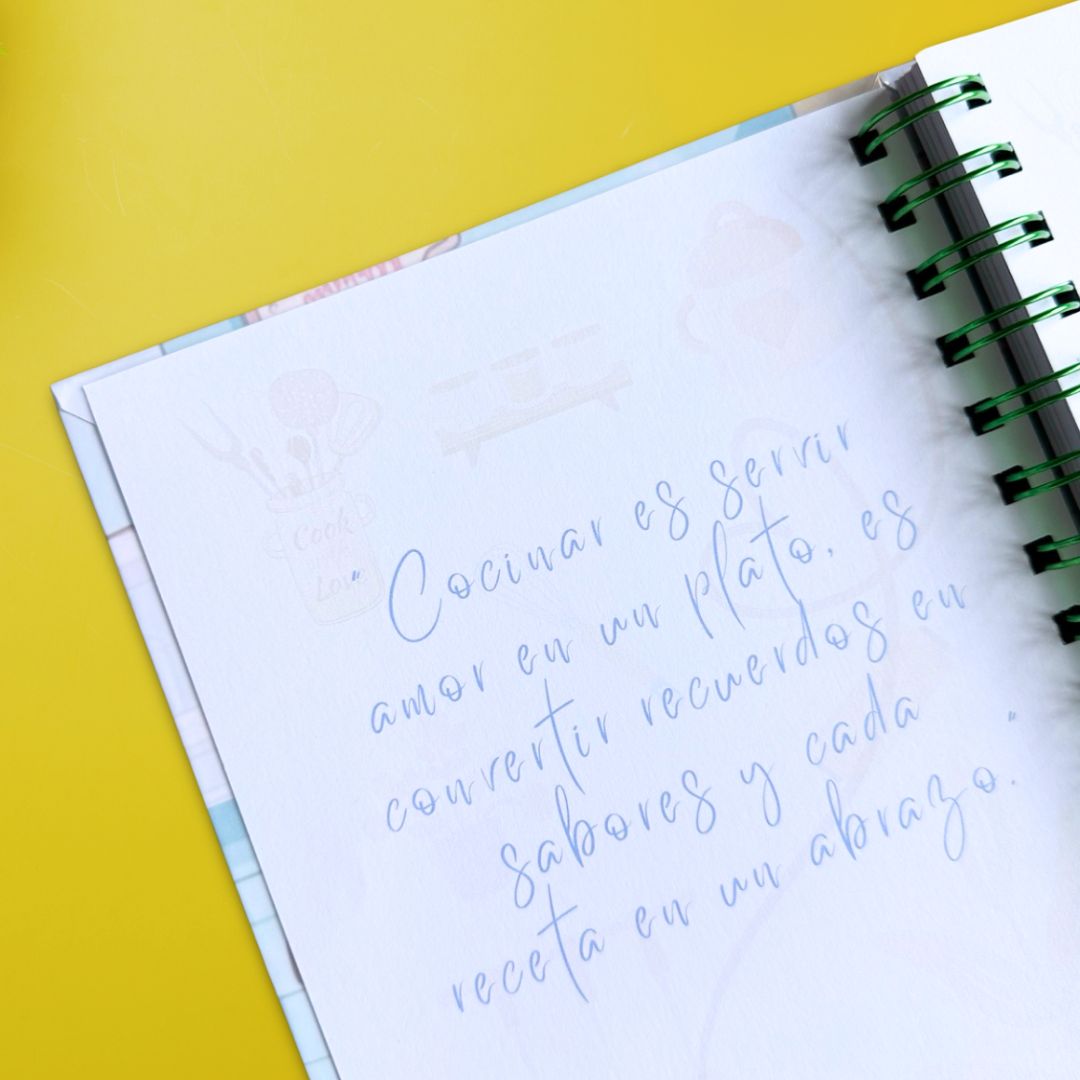 Cook
Love
"Cocinar es servir
amor en un plato, es
convertir recuerdos en
sabores y cada
receta en un abrazo."